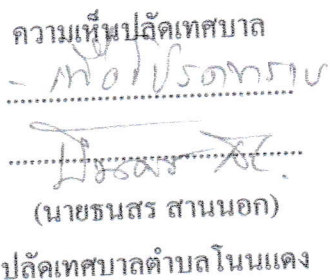 ความเห็นปลัดเทศบาล
- เพื่อโปรดทราบ
(นายธนสร สานนอก)
ปลัดเทศบาลตำบลโนนแดง